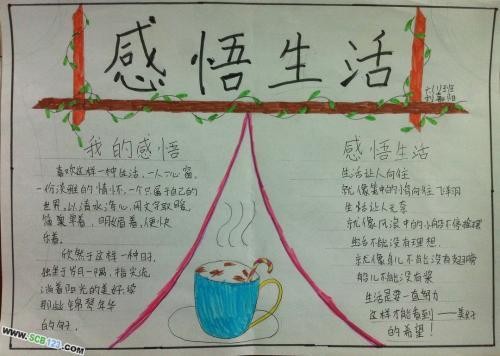 感悟生活
六(1)班
我的感悟
喜欢这样一种生活,一人一心窗。
一份淡雅的情怀,一个属于自己的
世界,以清水洗心,用文字取暖。
简单着,明媚着,便快
乐着。
欣然于这样一种时
独坐于岁月一隅,指尖流
淌着阳光的美好,续
那些锦瑟年华
的句子.
感悟生活
生活让人向往
就像笼中的鸟向往飞翔
生活让人无奈
就像风浪中的小船不停摇摆
生活不能没有理想
就像鸟儿不能没有翅膀
船儿不能没有桨
生活是要一直努力
这样才能看到——美好
的希望!
www.SCB123.COM